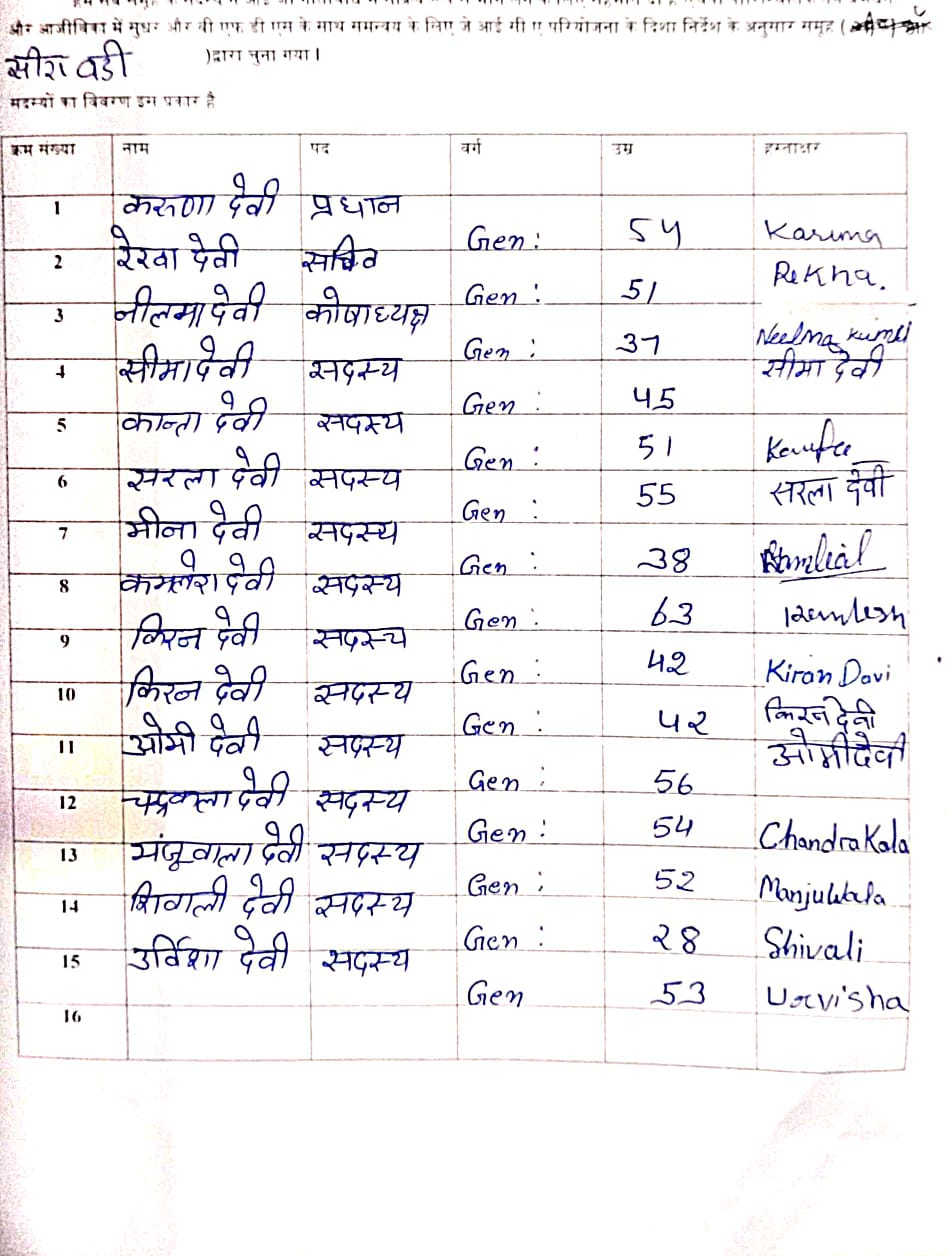 और आजीविका में सुधर और वी एफ डी एस के साथ समन्वय के लिए जे आई सी ए परियोजना के दिशा निर्देश के अनुसार समूह (
सीरा वडी )द्वारा चुना गया।
सदस्यों का विवरण इस प्रकार है
क्रम संख्या नाम पद वर्ग उम्र हस्ताक्षर
1 करुणा देवी प्रधान Gen: 54 Karuna
2 रेखा देवी सचिव Gen: 51 Rekha.
3 नीलमा देवी कोषाध्यक्ष Gen: 37 Neelma
4 सीमा देवी सदस्य Gen: 45 सीमा देवी
5 कान्ता देवी सदस्य Gen: 51
6 सरला देवी सदस्य Gen: 55 सरला देवी
7 मीना देवी सदस्य Gen: 38
8 देवी सदस्य Gen: 63 Kemlesh
9 किरन देवी सदस्य Gen: 42 Kiran Davi
10 किरन देवी सदस्य Gen: 42 किरन देवी
11 ओमी देवी सदस्य Gen: 56 ओमी देवी
12 चद्रकला देवी सदस्य Gen: 54 Chandra Kala
13 मंजूवाला देवी सदस्य Gen: 52 Manju Wala
14 शिवाली देवी सदस्य Gen: 28 Shivali
15 उर्विशा देवी सदस्य Gen 53 Urvisha
16